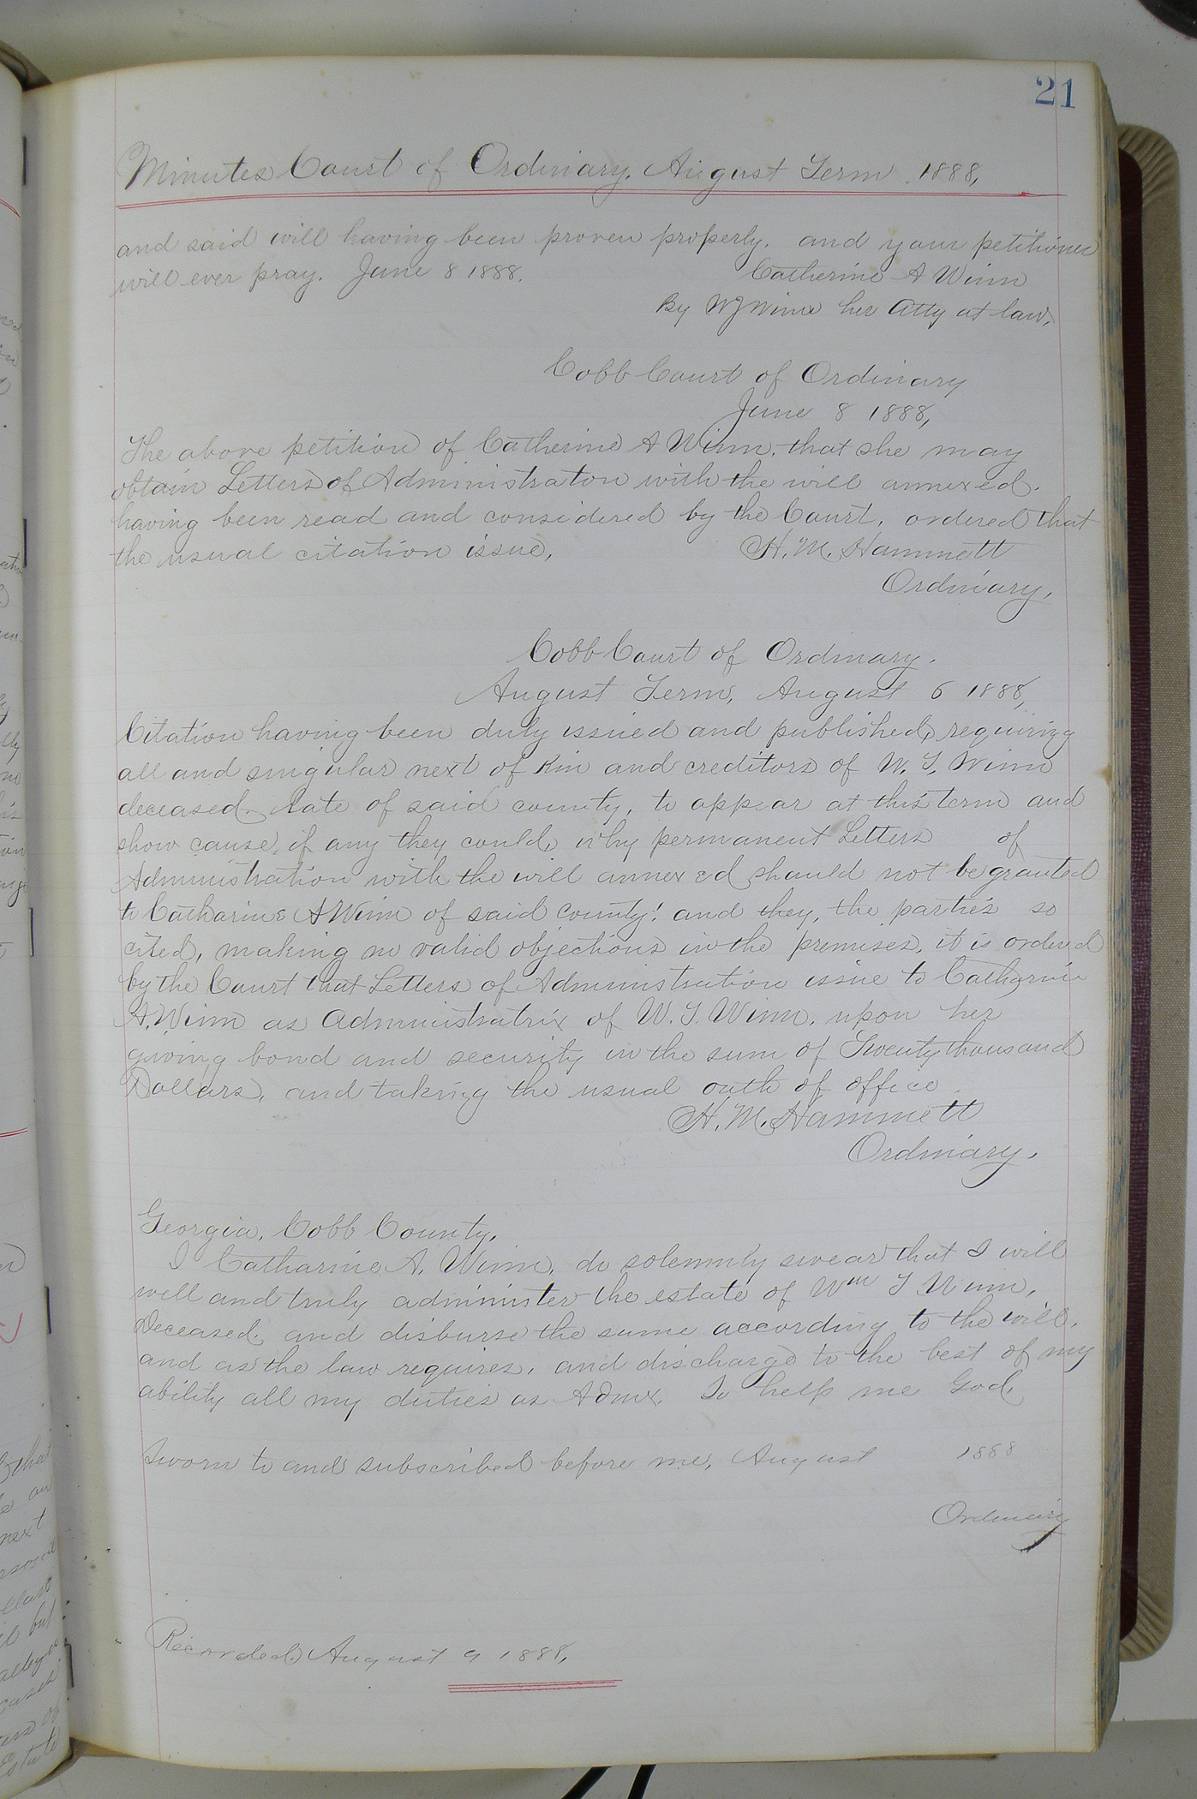 21
Minutes Court of Ordinary. August Term 1888,
and said will having been proven properly. and your petitioner
will ever pray. June 8 1888.
Catherine A Winn
By WJ Winn her Atty at law,
Cobb Court of Ordinary
June 8 1888,
The above petition of Catherine A Winn. that she may
obtain Letters of Administraton with the will annexed.
having been read and considered by the Court, ordered that
the usual citation issue,
H. M. Hammett
Ordinary,
Cobb Court of Ordinary.
August Term, August 6 1888,
Citation having been duly issued and published, requiring
all and singular next of kin and creditors of W. T. Winn
deceased. late of said county, to appear at this term and
show cause, if any they could, why permanent Letters of
Administration with the will annexed should not be granted
to Catharine A Winn of said county! and they, the parties so
cited, making no valid objections in the premises, it is ordered
by the Court that Letters of Administration issue to Catharine
A. Winn as administratrix of W. T. Winn. upon her
giving bond and security in the sum of Twenty thousand
Dollars, and taking the usual oath of office
H. M. Hammett
Ordinary.
Georgia, Cobb County,
I Catharine A. Winn, do solemnly swear that I will
well and truly administer the estate of Wm T Winn,
Deceased. and disburse the same according to the will.
and as the law requires, and discharge to the best of my
ability all my duties as Admx. So help me God.
Sworn to and subscribed before me, August 1888
Ordinary
Recorded August 9 1888,